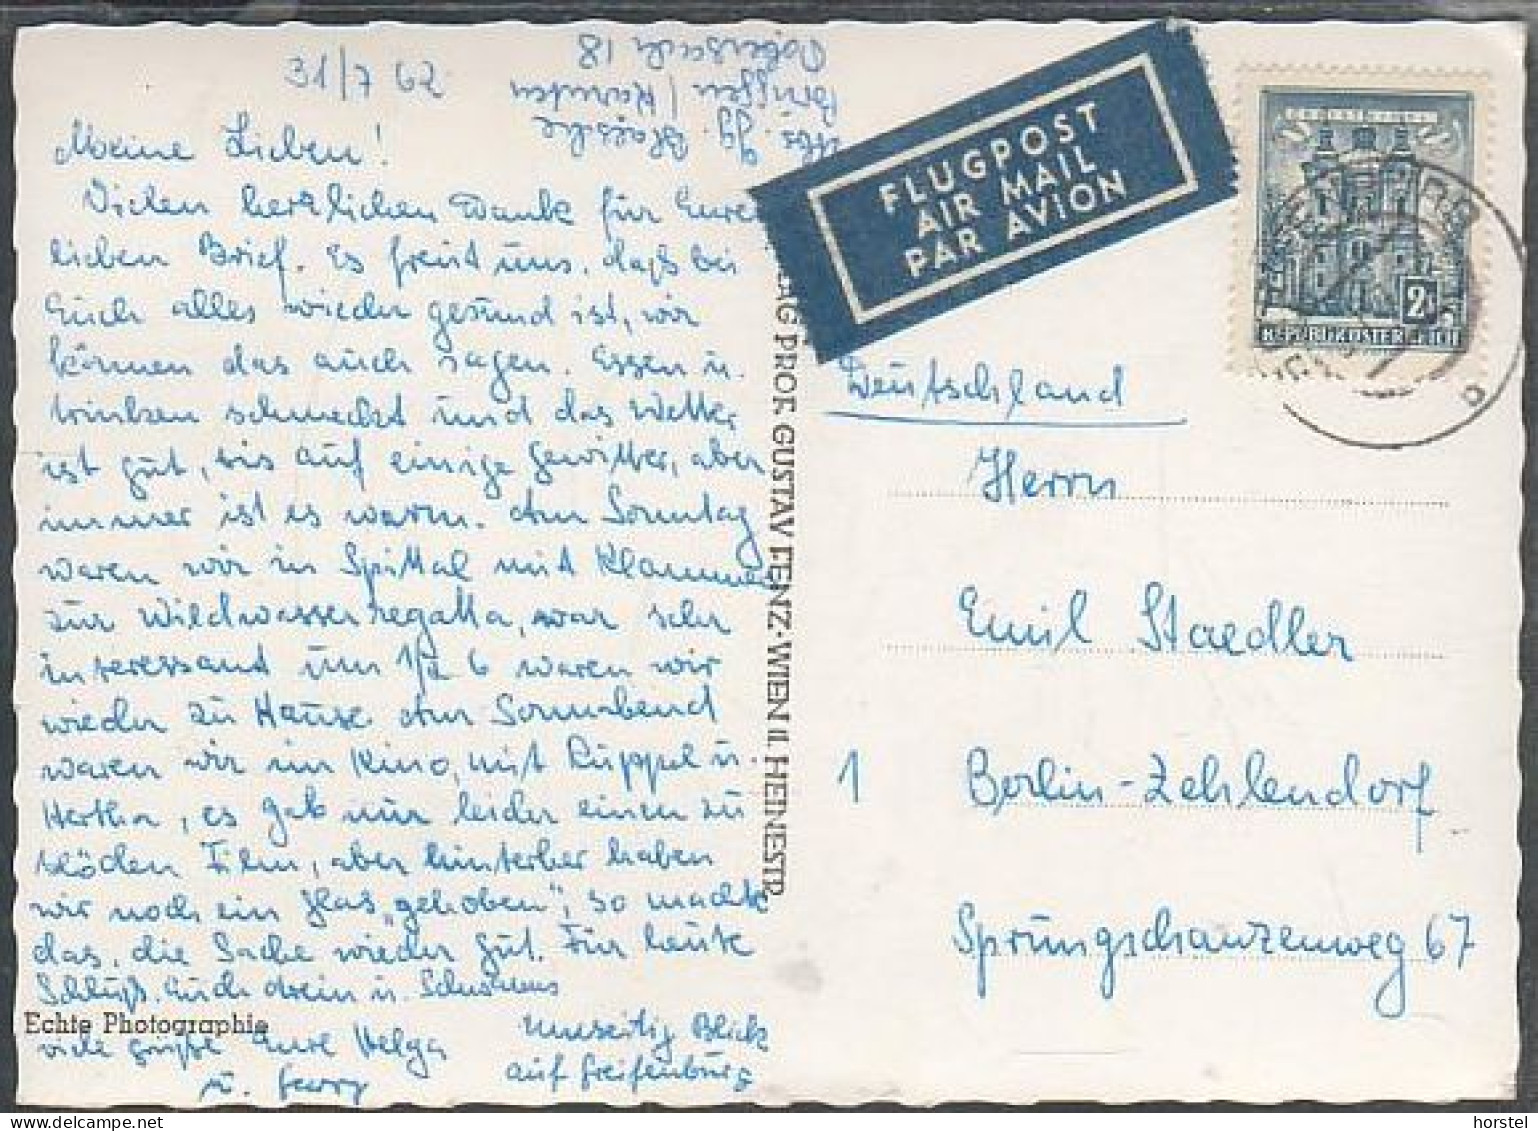 31/7 62
Abs. Gg.
Kärnten
18
Meine Lieben!
Vielen herzlichen Dank für Euren
lieben Brief. Es freut uns, daß bei
Euch alles wieder gesund ist, wir
können das auch sagen. Essen u.
trinken schmeckt und das Wetter
ist gut, bis auf einige Gewitter, aber
immer ist es warm. Am Sonntag
waren wir in Spittal mit Klammer
zur Wildwasserregatta, war sehr
interessant um 1/2 6 waren wir
wieder zu Hause. Am Sonnabend
waren wir im Kino, mit Ruppel u.
Hertha, es gab nur leider einen zu
blöden Film, aber hinterher haben
wir noch ein Glas „gehoben", so machte
das, die Sache wieder gut. Für heute
Schluß. Euch drein u.
viele Grüße Eure Helga
u. Gerry
umseitig Blick
auf Greifenburg
Echte Photographie
VERLAG PROF. GUSTAV FENZ·WIEN II. HEINESTR.
FLUGPOST
AIR MAIL
PAR AVION
2
REPUBLIK ÖSTERREICH
Deutschland
Herrn
Emil Staedler
1 Berlin-Zehlendorf
Sprungschanzenweg 67